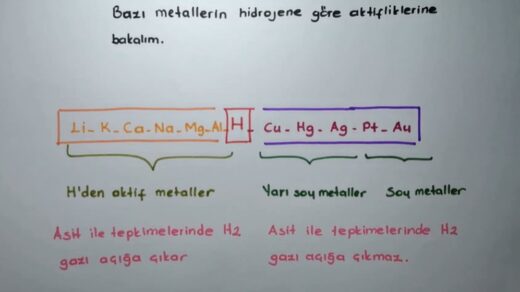 Bazı metallerin hidrojene göre aktifliklerine
bakalım.
Li - K - Ca - Na - Mg - Al - H - Cu - Hg - Ag - Pt - Au
H'den aktif metaller
Yarı soy metaller
Soy metaller
Asit ile tepkimelerinde H2
gazı açığa çıkar
Asit ile tepkimelerinde H2
gazı açığa çıkmaz.